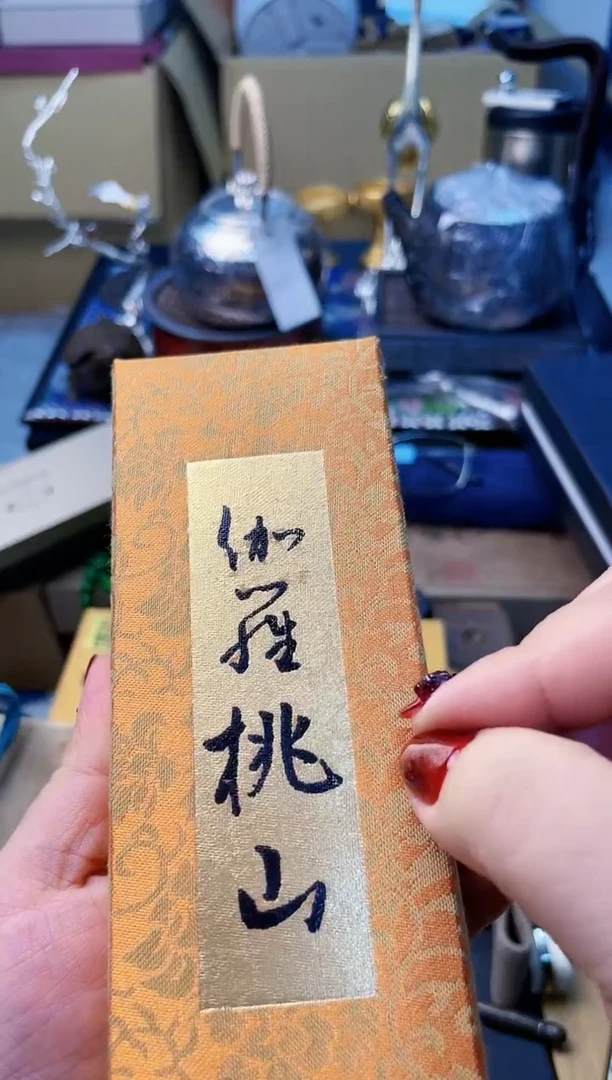 伽羅桃山